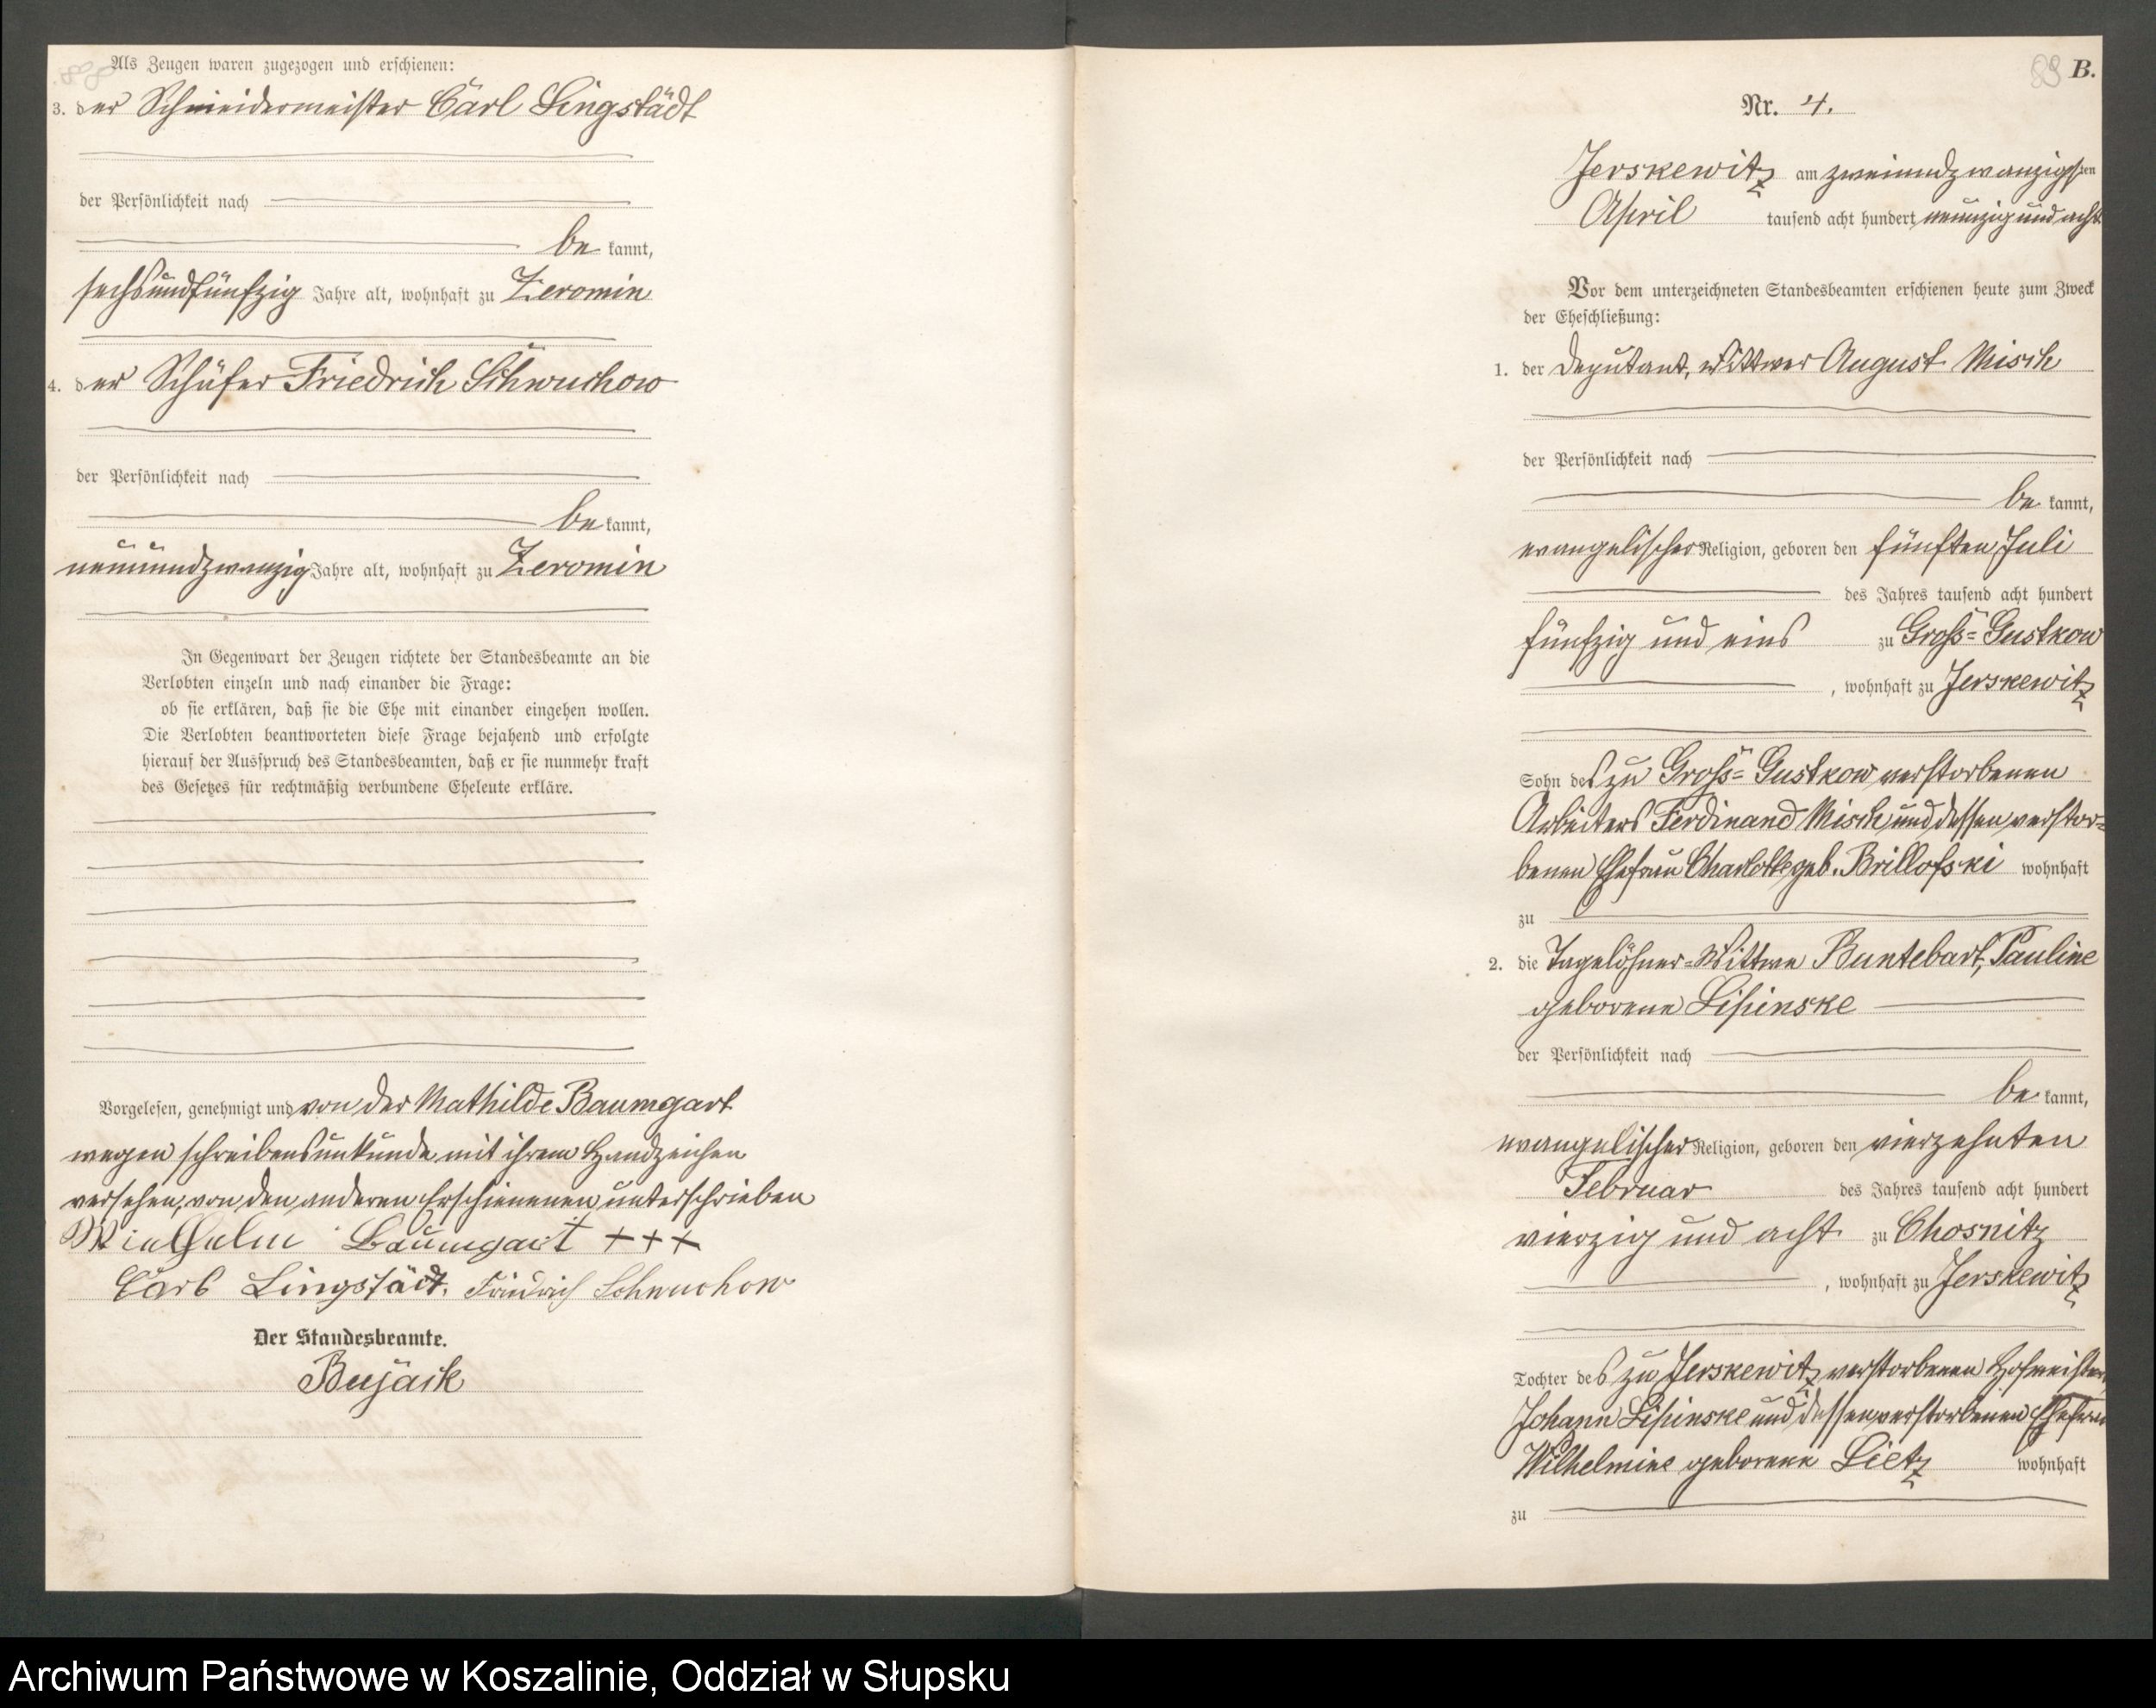 Als Zeugen waren zugezogen und erschienen:
3. der Schneidermeister Carl Lingstädt
der Persönlichkeit nach
be kannt,
sechsundfünfzig Jahre alt, wohnhaft zu Zeromin
4. der Schäfer Friedrich Schwuchow
der Persönlichkeit nach
be kannt,
neunundzwanzig Jahre alt, wohnhaft zu Zeromin
In Gegenwart der Zeugen richtete der Standesbeamte an die
Verlobten einzeln und nach einander die Frage:
ob sie erklären, daß sie die Ehe mit einander eingehen wollen.
Die Verlobten beantworteten diese Frage bejahend und erfolgte
hierauf der Ausspruch des Standesbeamten, daß er sie nunmehr kraft
des Gesetzes für rechtmäßig verbundene Eheleute erkläre.
Vorgelesen, genehmigt und von der Mathilde Baumgart
wegen schreibensunkunde mit ihrem Handzeichen
versehen, von den anderen Erschienenen unterschrieben
Baumgart +++
Carl Lingstädt. Friedrich Schwuchow
Der Standesbeamte.
Bujack
89 B.
Nr. 4.
Jerskewitz am zweiundzwanzigsten
April tausend acht hundert neunzig und acht
Vor dem unterzeichneten Standesbeamten erschienen heute zum Zweck
der Eheschließung:
1. der Deputant, Wittwer August Misch
der Persönlichkeit nach
be kannt,
evangelischer Religion, geboren den fünften Juli
des Jahres tausend acht hundert
fünfzig und eins zu Groß=Gustkow
, wohnhaft zu Jerskewitz
Sohn des zu Groß=Gustkow verstorbenen
Arbeiters Ferdinand Misch und dessen verstor=
benen Ehefrau Charlotte geb. Brillofski wohnhaft
zu
2. die Tagelöhner=Wittwe Buntebart, Pauline
geborene Lipinske
der Persönlichkeit nach
be kannt,
evangelischer Religion, geboren den vierzehnten
Februar des Jahres tausend acht hundert
vierzig und acht zu Chosnitz
, wohnhaft zu Jerskewitz
Tochter des zu Jerskewitz verstorbenen Hofmeisters
Johann Lipinske und dessen verstorbenen Ehefrau
Wilhelmine geborene Lietz wohnhaft
zu
Archiwum Państwowe w Koszalinie, Oddział w Słupsku